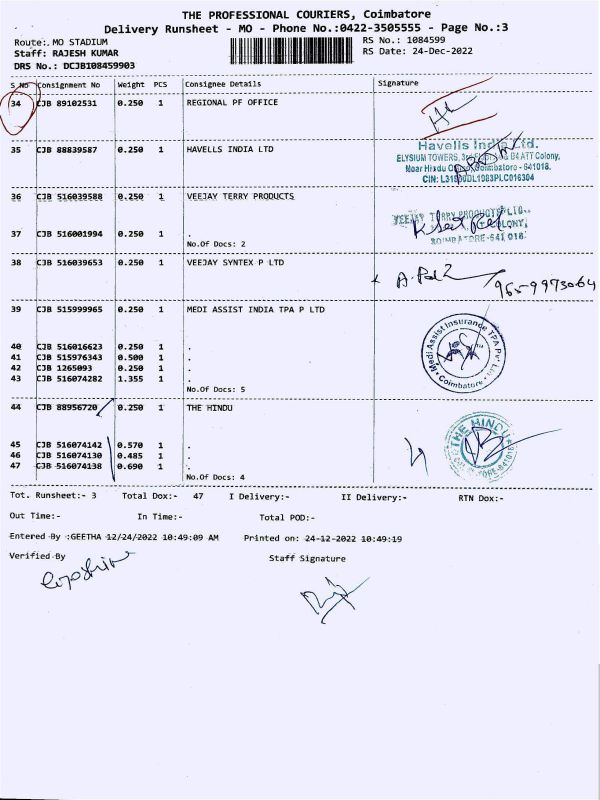 THE PROFESSIONAL COURIERS, Coimbatore
Delivery Runsheet - MO - Phone No.:0422-3505555 - Page No.:3
Route:. MO STADIUM RS No.: 1084599
Staff: RAJESH KUMAR RS Date: 24-Dec-2022
DRS No.: DCJB108459903
S No Consignment No Weight PCS Consignee Details Signature
34 CJB 89102531 0.250 1 REGIONAL PF OFFICE
35 CJB 88839587 0.250 1 HAVELLS INDIA LTD
Havells India Ltd.
ELYSIUM TOWERS, B4 ATT Colony,
Near Hindu Office, Coimbatore - 641018.
36 CJB 516039588 0.250 1 VEEJAY TERRY PRODUCTS
VEEJAY TERRY PRODUCTS LTD.,
COLONY,
COIMBATORE-641 018.
37 CJB 516001994 0.250 1 .
No.Of Docs: 2
38 CJB 516039653 0.250 1 VEEJAY SYNTEX P LTD
39 CJB 515999965 0.250 1 MEDI ASSIST INDIA TPA P LTD
40 CJB 516016623 0.250 1 .
41 CJB 515976343 0.500 1 .
42 CJB 1265093 0.250 1 .
43 CJB 516074282 1.355 1 .
No.Of Docs: 5
Medi Assist Insurance TPA Pvt Ltd
Coimbatore
44 CJB 88956720 0.250 1 THE HINDU
THE HINDU
45 CJB 516074142 0.570 1 .
46 CJB 516074130 0.485 1 .
47 CJB 516074138 0.690 1 .
No.Of Docs: 4
Tot. Runsheet:- 3 Total Dox:- 47 I Delivery:- II Delivery:- RTN Dox:-
Out Time:- In Time:- Total POD:-
Entered By :GEETHA 12/24/2022 10:49:09 AM Printed on: 24-12-2022 10:49:19
Verified By Staff Signature